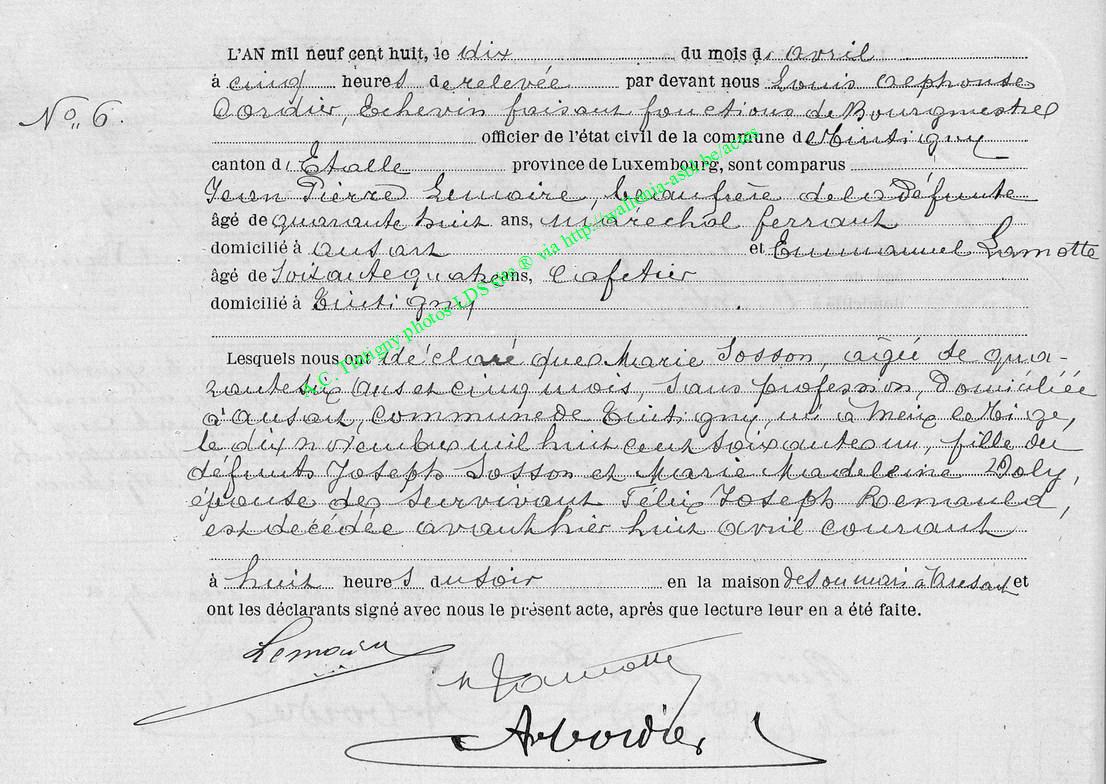 L'AN mil neuf cent huit, le dix du mois d'avril
No 6.
à cinq heures de relevée par devant nous Louis Alphonse
Cordier, Echevin faisant fonctions de Bourgmestre
officier de l'état civil de la commune de Tintigny
canton d'Etalle province de Luxembourg, sont comparus
Jean Pierre Lemoire, beaufrère de la défunte
âgé de quarante huit ans, maréchal ferrant
domicilié à Ansart et Emmanuel Lamotte
âgé de soixante quatre ans, Cafetier
domicilié à Tintigny
Lesquels nous ont déclaré que Marie Sosson, âgée de qua-
rante six ans et cinq mois, sans profession, domiciliée
à Ansart, commune de Tintigny, née à Meix le Tige,
le dix novembre mil huit cent soixante un, fille des
défunts Joseph Sosson et Marie Madeleine Poly,
épouse de survivant Félix Joseph Remauld,
est décédée avant hier huit avril courant
à huit heures du soir en la maison de son mari à Ansart et
ont les déclarants signé avec nous le présent acte, après que lecture leur en a été faite.
Lemoire
Lamotte
A Cordier
A.C. Tintigny photos LDS ® via http://wallonia-asbl.be/actes